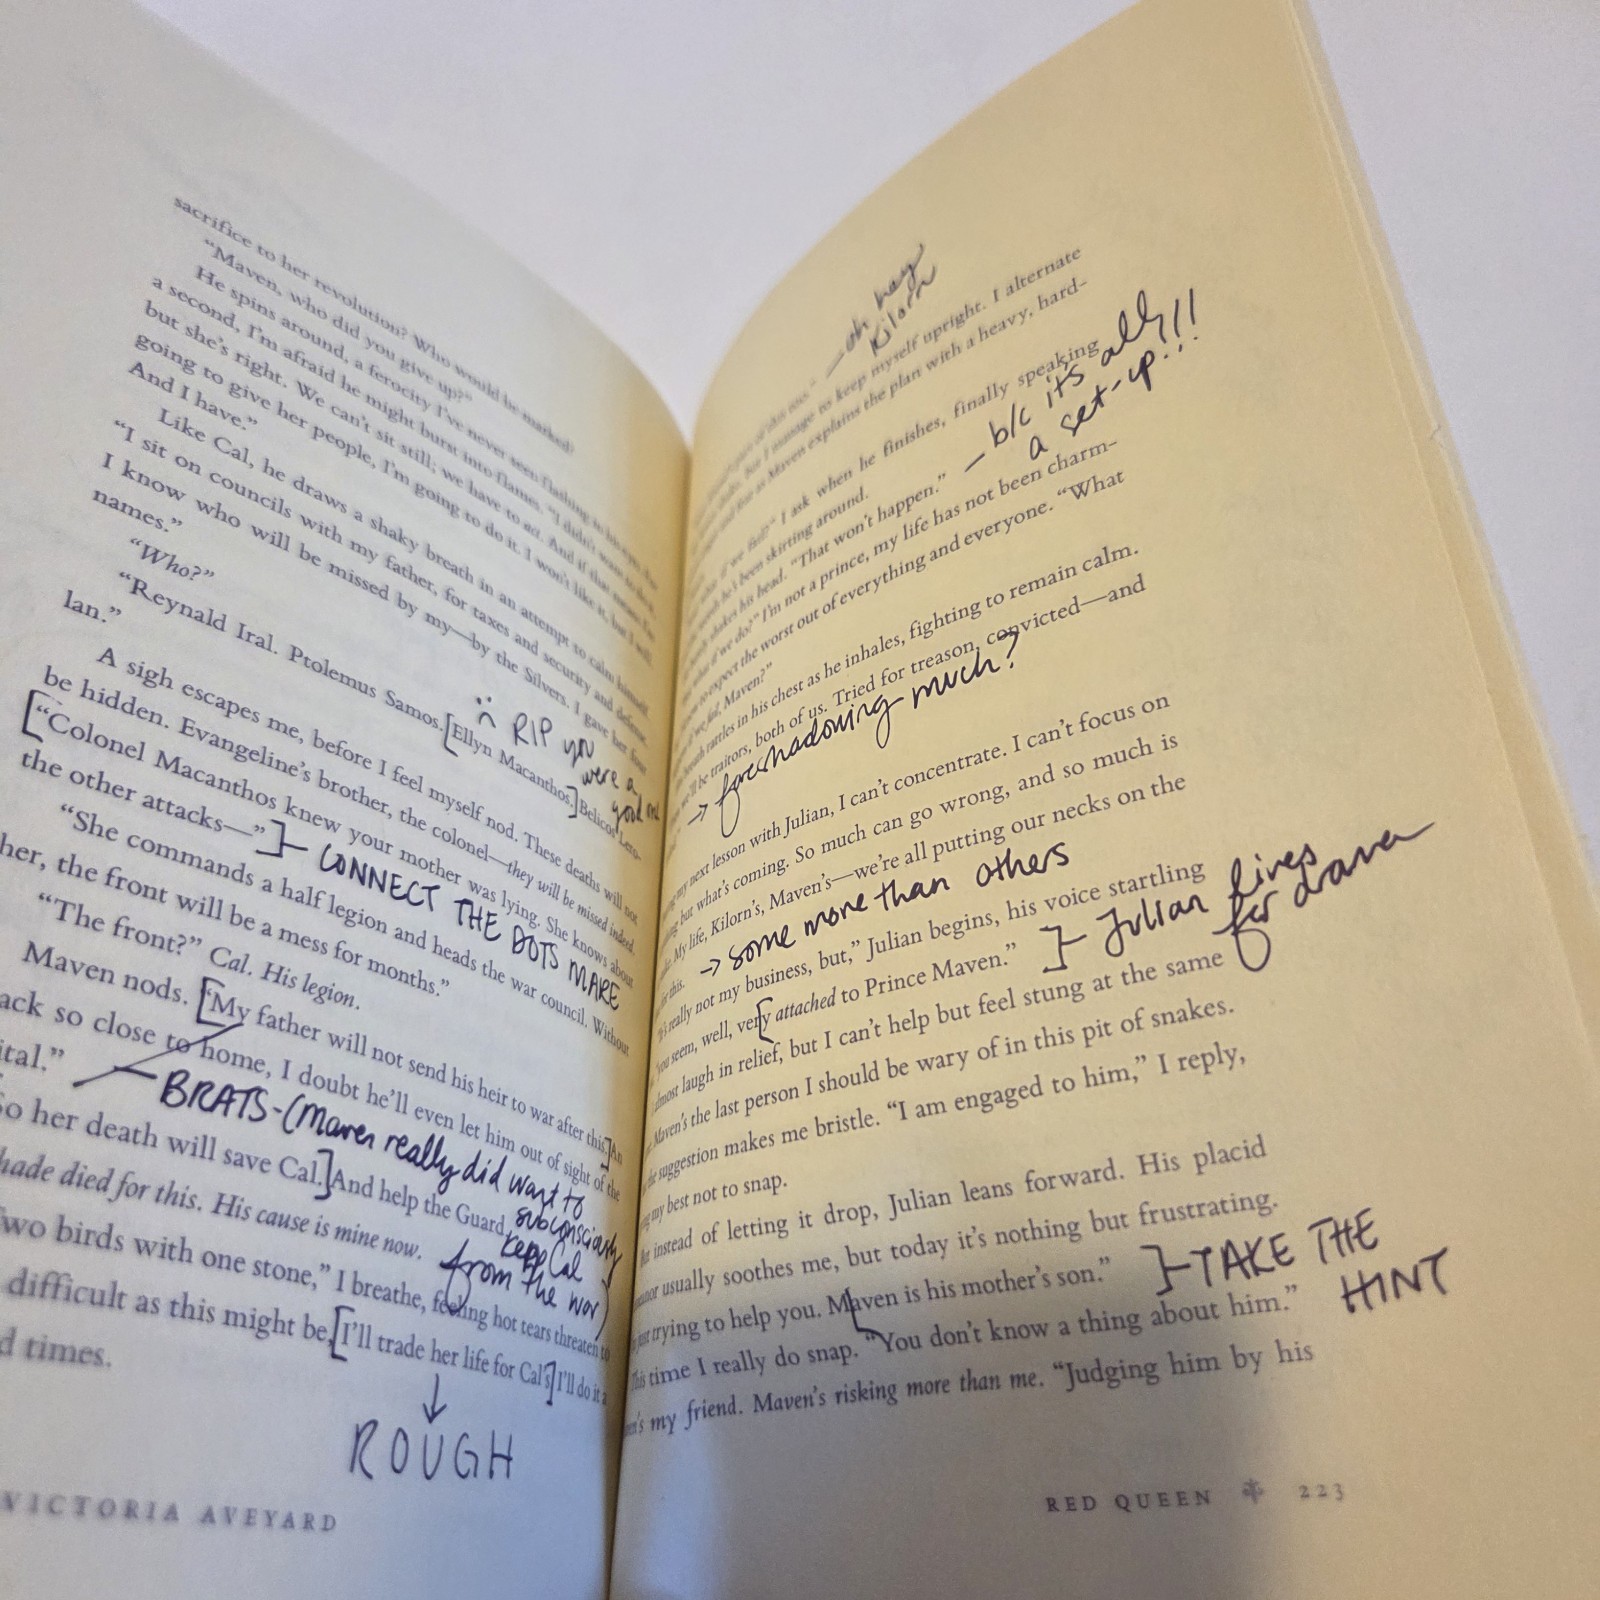 sacrifice to her revolution? Who would be marked?
"Maven, who did you give up?"
He spins around, a ferocity I've never seen flashing in his eyes. For
a second, I'm afraid he might burst into flames. "I didn't want to do it
but she's right. We can't sit still; we have to act. And if that means I'm
going to give her people, I'm going to do it. I won't like it, but I will.
And I have."
Like Cal, he draws a shaky breath in an attempt to calm himself.
"I sit on councils with my father, for taxes and security and defense.
I know who will be missed by my—by the Silvers. I gave her four
names."
"Who?"
"Reynald Iral. Ptolemus Samos. [Ellyn Macanthos.] Belicos Lero-
lan."
:( RIP you
were a
good one
A sigh escapes me, before I feel myself nod. These deaths will not
be hidden. Evangeline's brother, the colonel—they will be missed indeed.
["Colonel Macanthos knew your mother was lying. She knows about
the other attacks—"]
– CONNECT THE DOTS MARE
"She commands a half legion and heads the war council. Without
her, the front will be a mess for months."
"The front?" Cal. His legion.
Maven nods. ["My father will not send his heir to war after this.] An
ack so close to home, I doubt he'll even let him out of sight of the
ital."
– BRATS - (Maven really did want to
subconsciously
keep Cal
from the war)
So her death will save Cal.] And help the Guard.
hade died for this. His cause is mine now.
Two birds with one stone," I breathe, feeling hot tears threaten to
difficult as this might be, [I'll trade her life for Cal's.] I'll do it a
d times.
↓
ROUGH
VICTORIA AVEYARD
of this too."
– oh hey
Kilorn
But I manage to keep myself upright. I alternate
as Maven explains the plan with a heavy, hard-
if we fail?" I ask when he finishes, finally speaking
he's been skirting around.
shakes his head. "That won't happen."
– b/c it's all
a set-up!!!
if we do?" I'm not a prince, my life has not been charm-
to expect the worst out of everything and everyone. "What
if we fail, Maven?"
breath rattles in his chest as he inhales, fighting to remain calm.
we'll be traitors, both of us. Tried for treason, convicted—and
→ foreshadowing much?
my next lesson with Julian, I can't concentrate. I can't focus on
but what's coming. So much can go wrong, and so much is
My life, Kilorn's, Maven's—we're all putting our necks on the
for this.
→ some more than others
"It's really not my business, but," Julian begins, his voice startling
"you seem, well, very [attached to Prince Maven."]
– Julian lives
for drama
almost laugh in relief, but I can't help but feel stung at the same
Maven's the last person I should be wary of in this pit of snakes.
the suggestion makes me bristle. "I am engaged to him," I reply,
my best not to snap.
But instead of letting it drop, Julian leans forward. His placid
manor usually soothes me, but today it's nothing but frustrating.
just trying to help you. [Maven is his mother's son."]
– TAKE THE
HINT
This time I really do snap. "You don't know a thing about him."
my friend. Maven's risking more than me. "Judging him by his
RED QUEEN 223